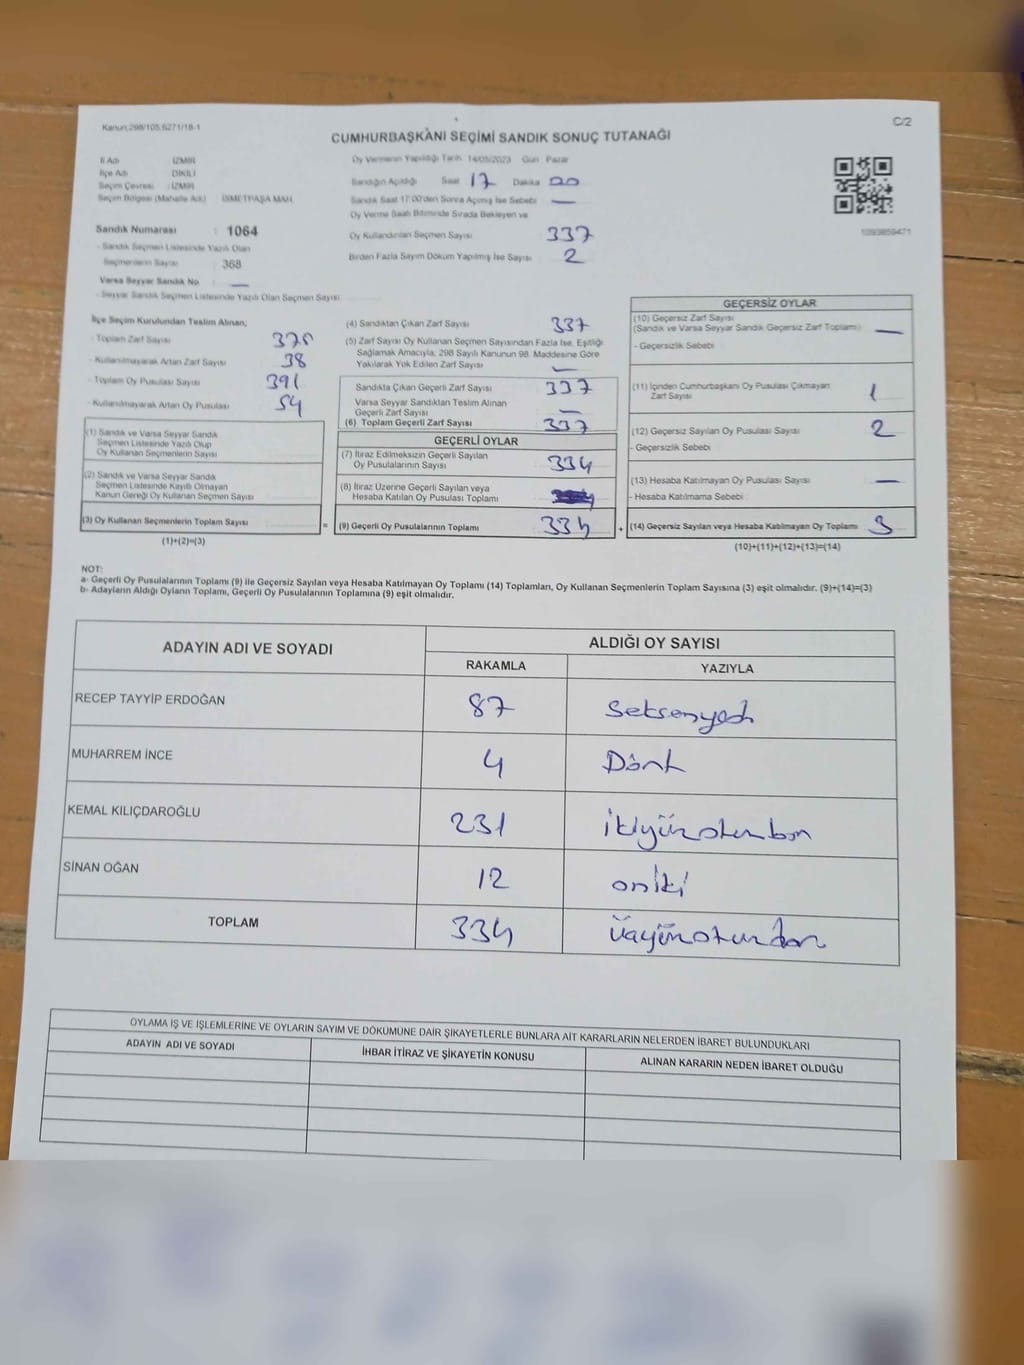 Kanun:298/105,6271/18-1
C/2
CUMHURBAŞKANI SEÇİMİ SANDIK SONUÇ TUTANAĞI
İl Adı İZMİR
İlçe Adı DİKİLİ
Seçim Çevresi : İZMİR
Seçim Bölgesi (Mahalle Adı) İSMETPAŞA MAH.
Sandık Numarası : 1064
- Sandık Seçmen Listesinde Yazılı Olan
Seçmenlerin Sayısı : 368
Varsa Seyyar Sandık No —
- Seyyar Sandık Seçmen Listesinde Yazılı Olan Seçmen Sayısı
Oy Vermenin Yapıldığı Tarih 14/05/2023 Gün Pazar
Sandığın Açıldığı Saat 17 Dakika 20
Sandık Saat 17:00'den Sonra Açılmış İse Sebebi —
Oy Verme Saati Bitiminde Sırada Bekleyen ve
Oy Kullandırılan Seçmen Sayısı 337
Birden Fazla Sayım Döküm Yapılmış İse Sayısı 2
1093859471
İlçe Seçim Kurulundan Teslim Alınan;
- Toplam Zarf Sayısı
- Kullanılmayarak Artan Zarf Sayısı 38
- Toplam Oy Pusulası Sayısı 391
- Kullanılmayarak Artan Oy Pusulası 54
(1) Sandık ve Varsa Seyyar Sandık
Seçmen Listesinde Yazılı Olup
Oy Kullanan Seçmenlerin Sayısı
(2) Sandık ve Varsa Seyyar Sandık
Seçmen Listesinde Kayıtlı Olmayan
Kanun Gereği Oy Kullanan Seçmen Sayısı
(3) Oy Kullanan Seçmenlerin Toplam Sayısı =
(1)+(2)=(3)
(4) Sandıktan Çıkan Zarf Sayısı 337
(5) Zarf Sayısı Oy Kullanan Seçmen Sayısından Fazla İse, Eşitliği
Sağlamak Amacıyla, 298 Sayılı Kanunun 98. Maddesine Göre
Yakılarak Yok Edilen Zarf Sayısı —
Sandıkta Çıkan Geçerli Zarf Sayısı 337
Varsa Seyyar Sandıktan Teslim Alınan
Geçerli Zarf Sayısı —
(6) Toplam Geçerli Zarf Sayısı 337
GEÇERLİ OYLAR
(7) İtiraz Edilmeksizin Geçerli Sayılan
Oy Pusulalarının Sayısı 334
(8) İtiraz Üzerine Geçerli Sayılan veya
Hesaba Katılan Oy Pusulası Toplamı
(9) Geçerli Oy Pusulalarının Toplamı 334 +
GEÇERSİZ OYLAR
(10) Geçersiz Zarf Sayısı
(Sandık ve Varsa Seyyar Sandık Geçersiz Zarf Toplamı) —
- Geçersizlik Sebebi
(11) İçinden Cumhurbaşkanı Oy Pusulası Çıkmayan
Zarf Sayısı 1
(12) Geçersiz Sayılan Oy Pusulası Sayısı 2
- Geçersizlik Sebebi
(13) Hesaba Katılmayan Oy Pusulası Sayısı —
- Hesaba Katılmama Sebebi
(14) Geçersiz Sayılan veya Hesaba Katılmayan Oy Toplamı 3
(10)+(11)+(12)+(13)=(14)
NOT:
a- Geçerli Oy Pusulalarının Toplamı (9) ile Geçersiz Sayılan veya Hesaba Katılmayan Oy Toplamı (14) Toplamları, Oy Kullanan Seçmenlerin Toplam Sayısına (3) eşit olmalıdır. (9)+(14)=(3)
b- Adayların Aldığı Oyların Toplamı, Geçerli Oy Pusulalarının Toplamına (9) eşit olmalıdır.
ADAYIN ADI VE SOYADI ALDIĞI OY SAYISI
RAKAMLA YAZIYLA
RECEP TAYYİP ERDOĞAN 87 Seksenyedi
MUHARREM İNCE 4 Dört
KEMAL KILIÇDAROĞLU 231 ikiyüzotuzbir
SİNAN OĞAN 12 oniki
TOPLAM 334 üçyüzotuzdört
OYLAMA İŞ VE İŞLEMLERİNE VE OYLARIN SAYIM VE DÖKÜMÜNE DAİR ŞİKAYETLERLE BUNLARA AİT KARARLARIN NELERDEN İBARET BULUNDUKLARI
ADAYIN ADI VE SOYADI İHBAR İTİRAZ VE ŞİKAYETİN KONUSU ALINAN KARARIN NEDEN İBARET OLDUĞU